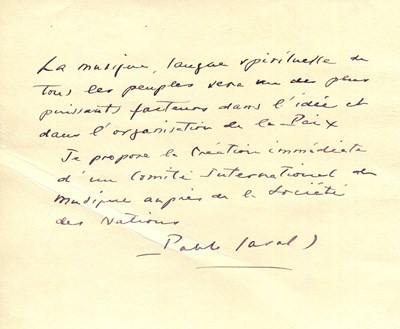 La musique, langue spirituelle de
tous les peuples sera un des plus
puissants facteurs dans l'idée et
dans l'organisation de la Paix
Je propose la Création immédiate
d'un Comité International de
musique auprès de la Société
des Nations
Pablo Casals